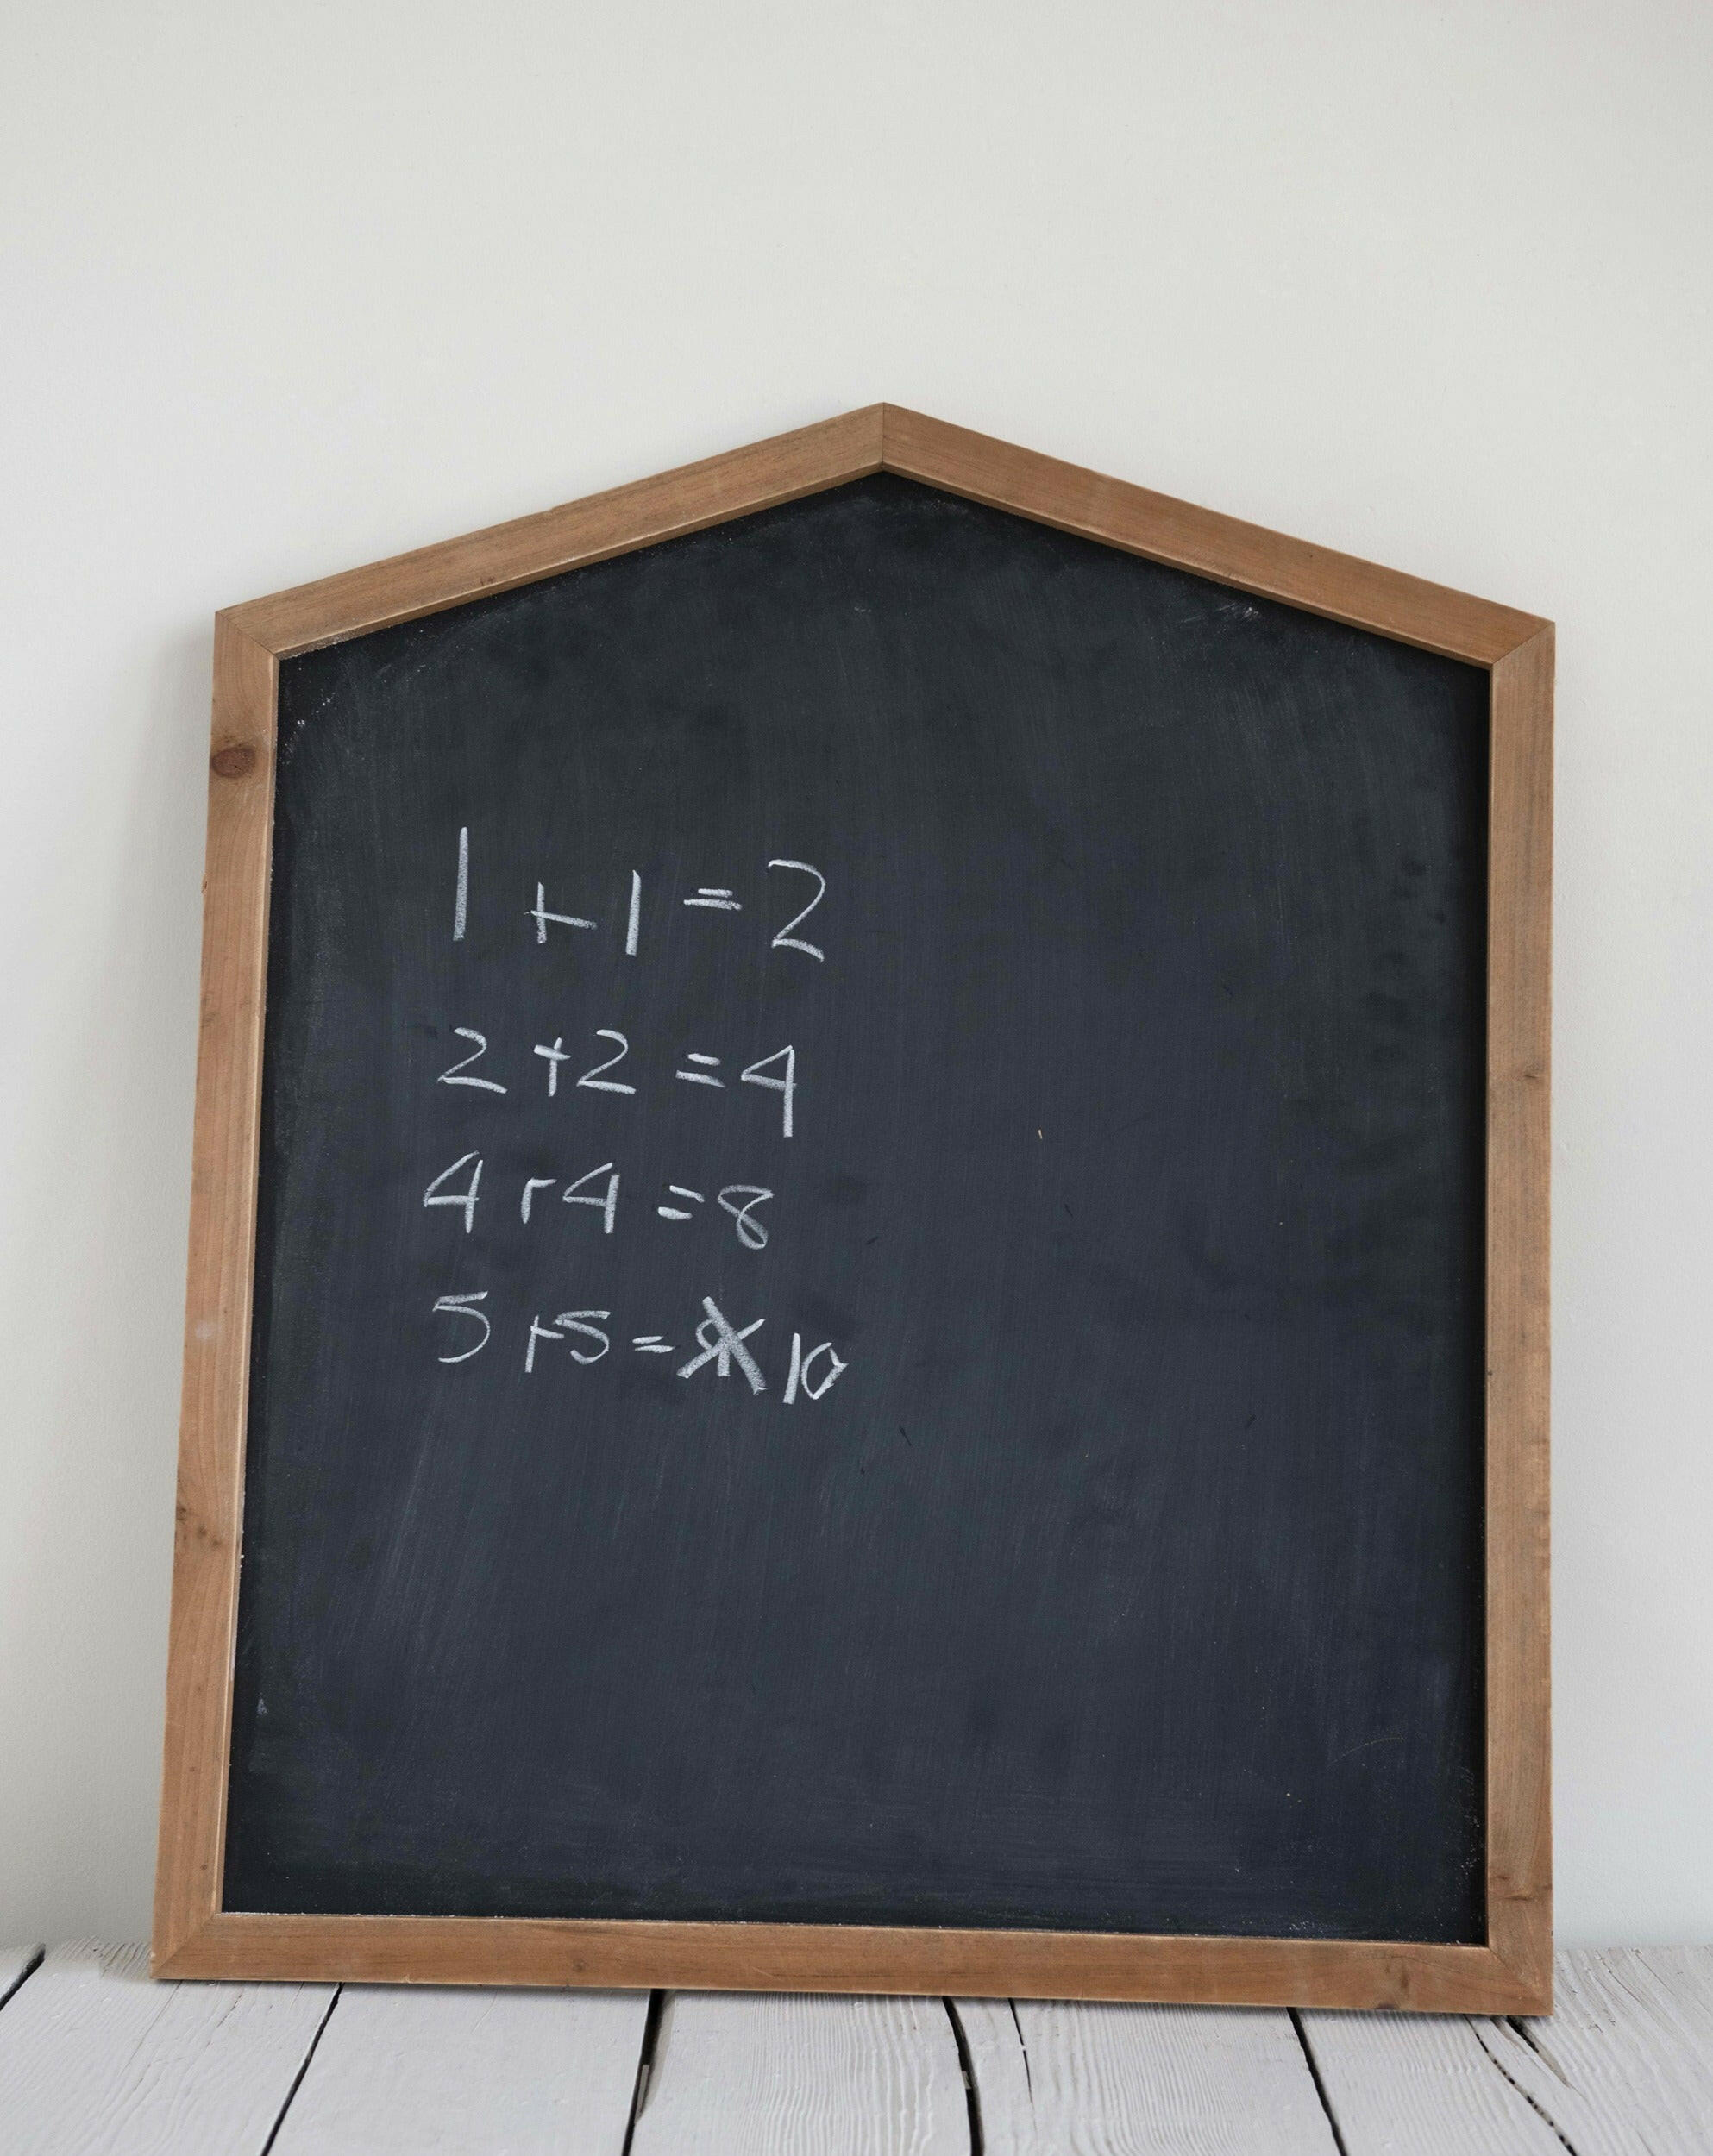 1 + 1 = 2
2 + 2 = 4
4 + 4 = 8
5 + 5 = 10